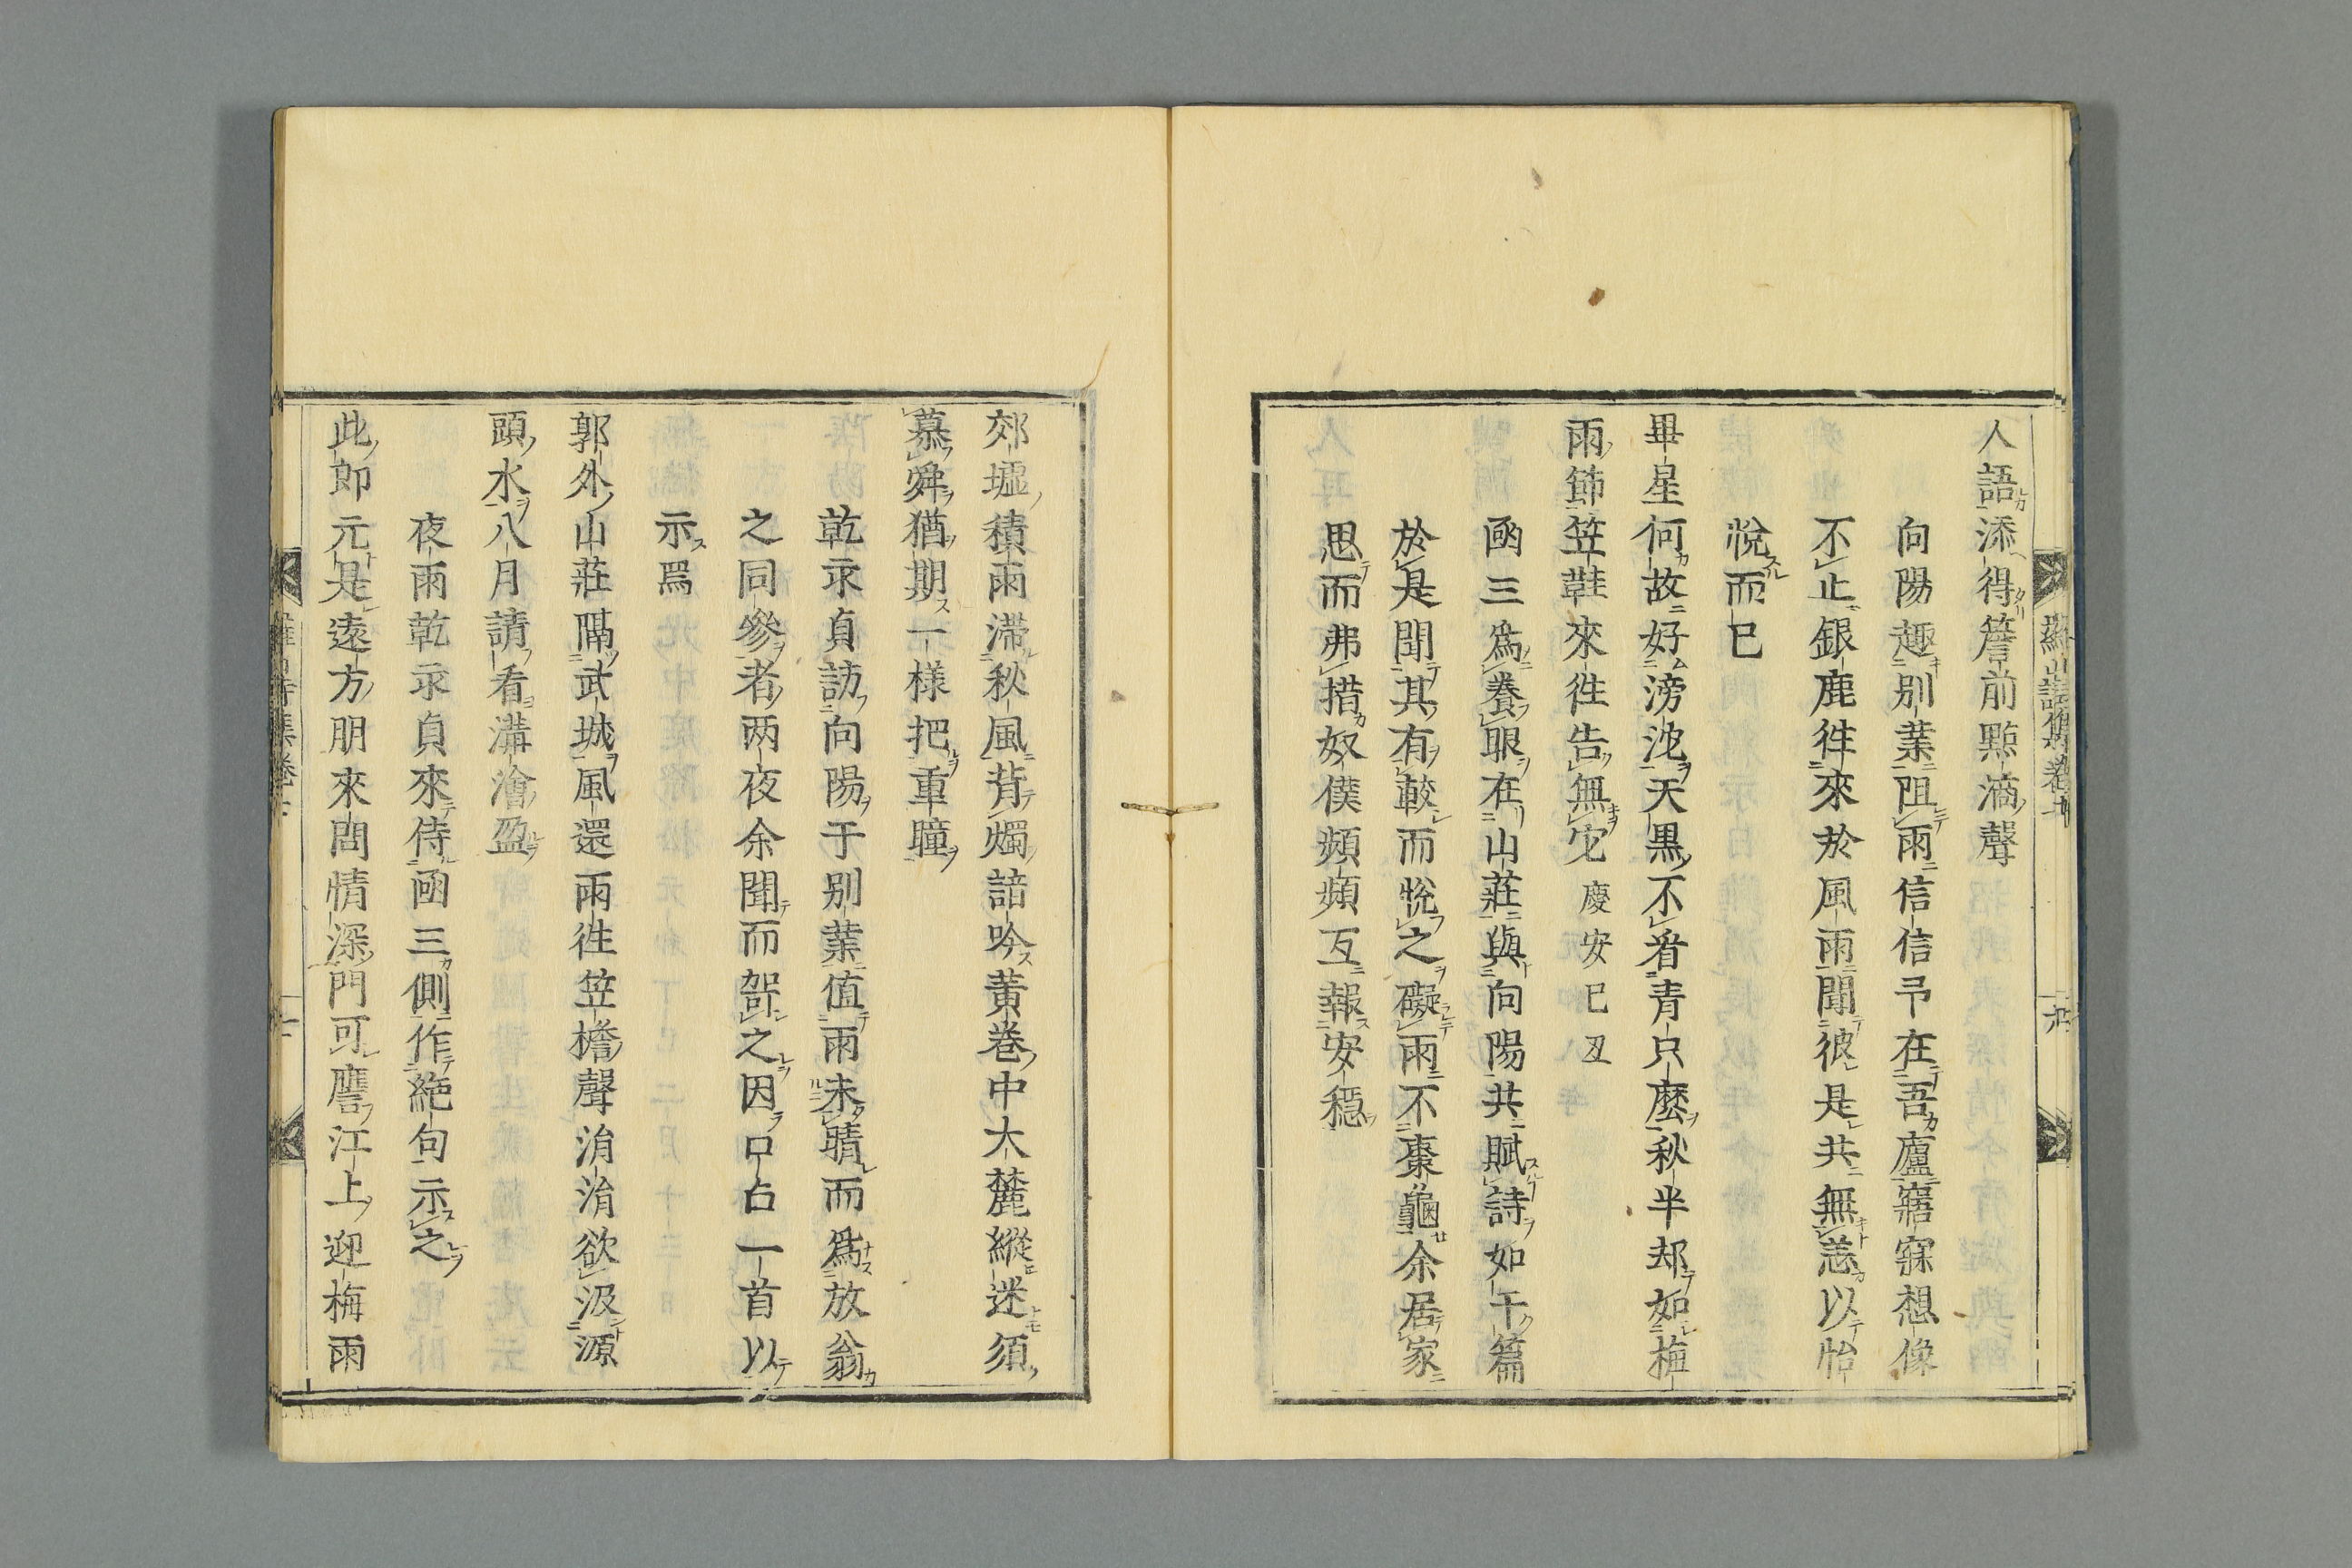 人語添得簷前點滴聲
向陽趣別業阻雨信信弔在吾廬寤寐想像
不止銀鹿徃來於風雨聞彼是共無恙以怡
悅而已
畢星何故好滂沱天黒不看青只麼秋半却如梅
雨節笠鞋來徃告無它慶安己丑
凾三為養眼在山莊與向陽共賦詩如干篇
於是聞其有較而悅之礙雨不棗龜余居家
思而弗措奴僕頻頻互報安穩
郊墟積雨滯秋風背燭諳吟黃巻中大麓縱迷須
慕舜猶期一樣把重瞳
乾永貞訪向陽于別業值雨未晴而為放翁
之同參者两夜余聞而咢之因口占一首以
示焉
郭外山莊隔武城風還雨徃笠檐聲涓涓欲汲源
頭水八月請看溝澮盈
夜雨乾永貞來侍凾三側作絶句示之
此郎元是遠方朋來問情深門可譍江上迎梅雨